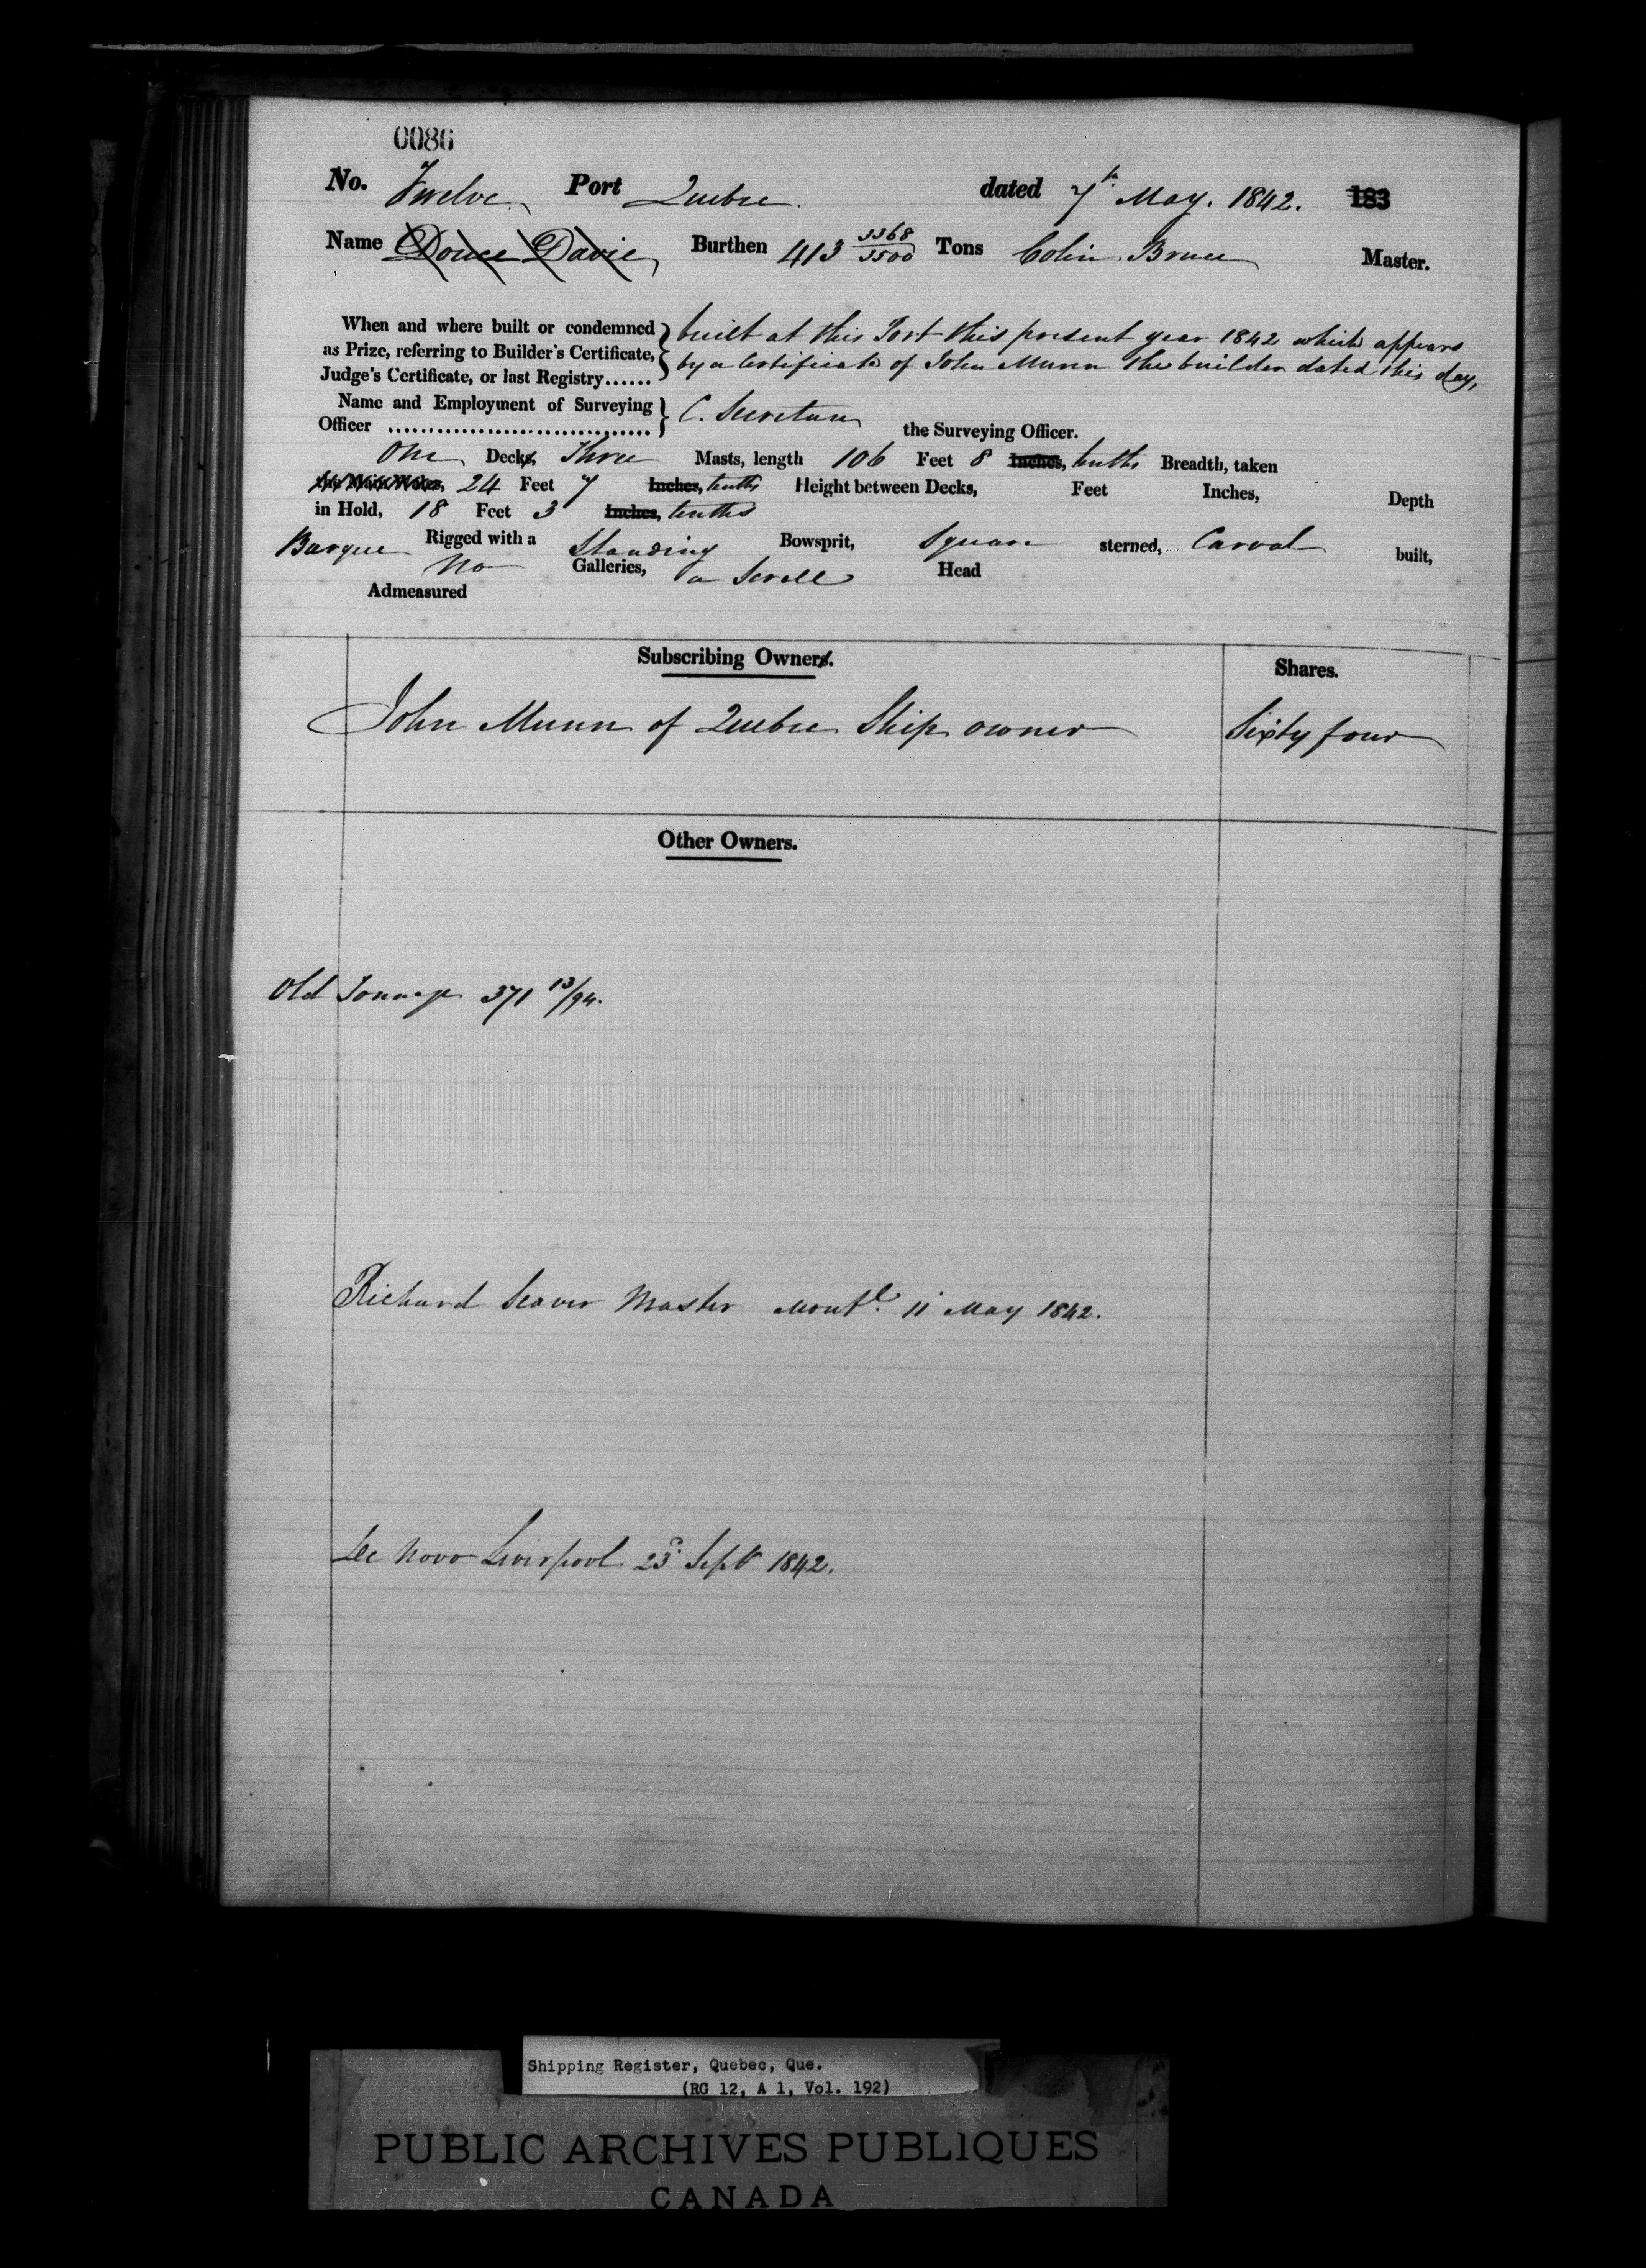 0086
No. Twelve Port Quebec dated 7th May. 1842. 183
Name Douce Davie Burthen 413 3368/3500 Tons Colin Bruce Master.
When and where built or condemned } built at this Port this present year 1842 which appears
as Prize, referring to Builder's Certificate, } by a Certificate of John Munn the builder dated this day,
Judge's Certificate, or last Registry......
Name and Employment of Surveying } C. Secretan
Officer ................................ the Surveying Officer.
One Decks, Three Masts, length 106 Feet 8 Inches, tenths Breadth, taken
24 Feet 7 Inches, tenths Height between Decks, Feet Inches, Depth
in Hold, 18 Feet 3 Inches, tenths
Barque Rigged with a Standing Bowsprit, Square sterned, Carvel built,
No Galleries, a Scroll Head
Admeasured
Subscribing Owners. Shares.
John Munn of Quebec Ship owner Sixty four
Other Owners.
Old Tonnage 371 13/94.
Richard Seaver Master Montl. 11 May 1842.
De Novo Liverpool 23d Sept 1842.
Shipping Register, Quebec, Que.
(RG 12, A 1, Vol. 192)
PUBLIC ARCHIVES PUBLIQUES
CANADA